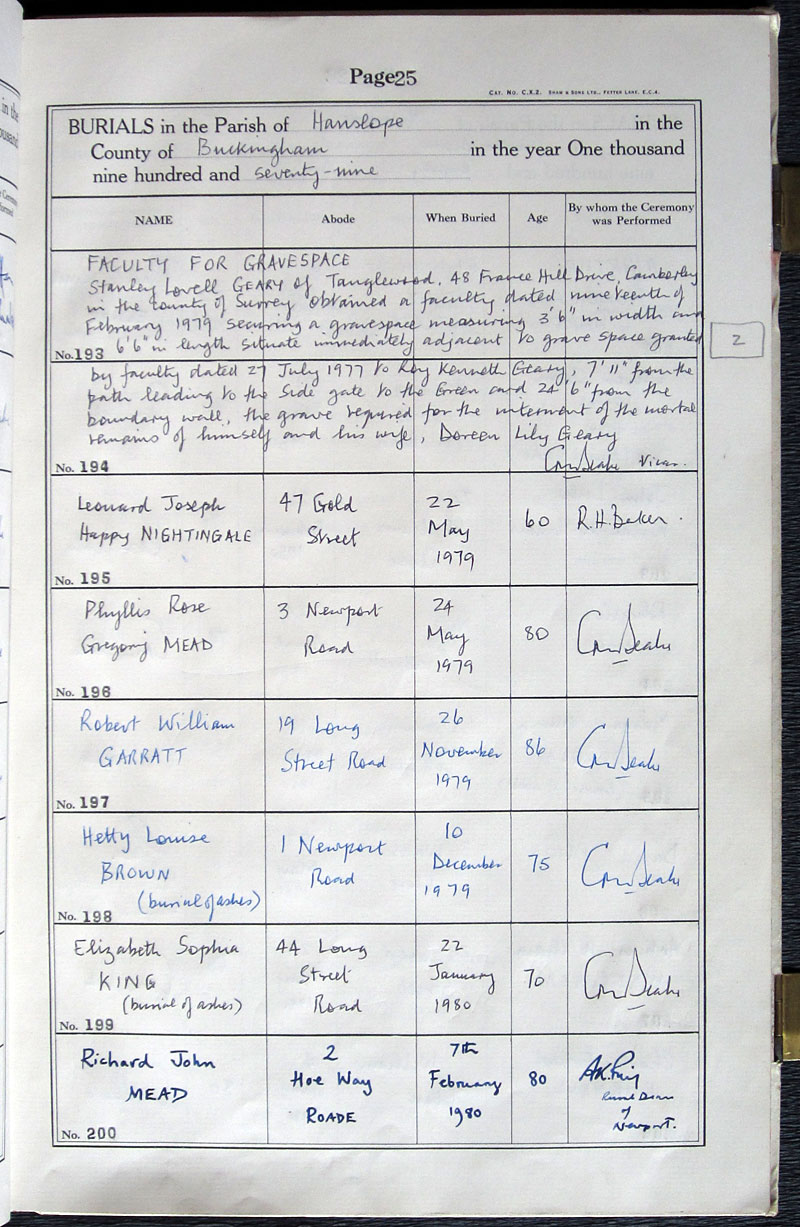 Page25
CAT. No. C.X.2. SHAW & SONS LTD., FETTER LANE, E.C.4.
BURIALS in the Parish of Hanslope in the
County of Buckingham in the year One thousand
nine hundred and seventy-nine
NAME Abode When Buried Age By whom the Ceremony was Performed
FACULTY FOR GRAVESPACE
Stanley Lovell GEARY of Tanglewood, 48 France Hill Drive, Camberley
in the county of Surrey obtained a faculty dated nineteenth of
February 1979 securing a gravespace measuring 3'6" in width and
6'6" in length situate immediately adjacent to grave space granted
No. 193
2
by faculty dated 27 July 1977 to Roy Kenneth Geary, 7'11" from the
path leading to the side gate to the Green and 24'6" from the
boundary wall, the grave required for the interment of the mortal
remains of himself and his wife, Doreen Lily Geary
Vicar.
No. 194
Leonard Joseph 47 Gold 22
Happy NIGHTINGALE Street May 60 R.H. Beker.
1979
No. 195
Phyllis Rose 3 Newport 24
Gregory MEAD Road May 80
1979
No. 196
Robert William 19 Long 26
GARRATT Street Road November 86
1979
No. 197
Hetty Louise 1 Newport 10
BROWN Road December 75
(burial of ashes) 1979
No. 198
Elizabeth Sophia 44 Long 22
KING Street January 70
(burial of ashes) Road 1980
No. 199
Richard John 2 7th
MEAD Hoe Way February 80
ROADE 1980
Rural Dean
of
Newport.
No. 200